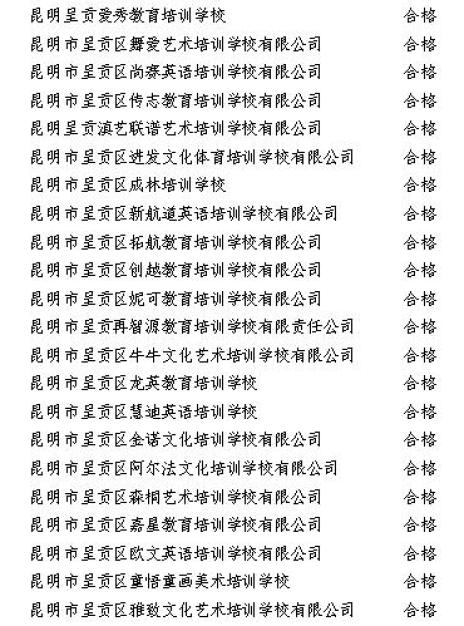 昆明呈贡爱秀教育培训学校 合格
昆明市呈贡区舞爱艺术培训学校有限公司 合格
昆明市呈贡区尚赛英语培训学校有限公司 合格
昆明市呈贡区传志教育培训学校有限公司 合格
昆明呈贡滇艺联谱艺术培训学校有限公司 合格
昆明市呈贡区进发文化体育培训学校有限公司 合格
昆明市呈贡区成林培训学校 合格
昆明市呈贡区新航道英语培训学校有限公司 合格
昆明市呈贡区拓航教育培训学校有限公司 合格
昆明市呈贡区创越教育培训学校有限公司 合格
昆明市呈贡区妮可教育培训学校有限公司 合格
昆明市呈贡再智源教育培训学校有限责任公司 合格
昆明市呈贡区牛牛文化艺术培训学校有限公司 合格
昆明市呈贡区龙英教育培训学校 合格
昆明市呈贡区慧迪英语培训学校 合格
昆明市呈贡区金诺文化培训学校有限公司 合格
昆明市呈贡区阿尔法文化培训学校有限公司 合格
昆明市呈贡区森桐艺术培训学校有限公司 合格
昆明市呈贡区嘉星教育培训学校有限公司 合格
昆明市呈贡区欧文英语培训学校有限公司 合格
昆明市呈贡区童悟童画美术培训学校 合格
昆明市呈贡区雅致文化艺术培训学校有限公司 合格